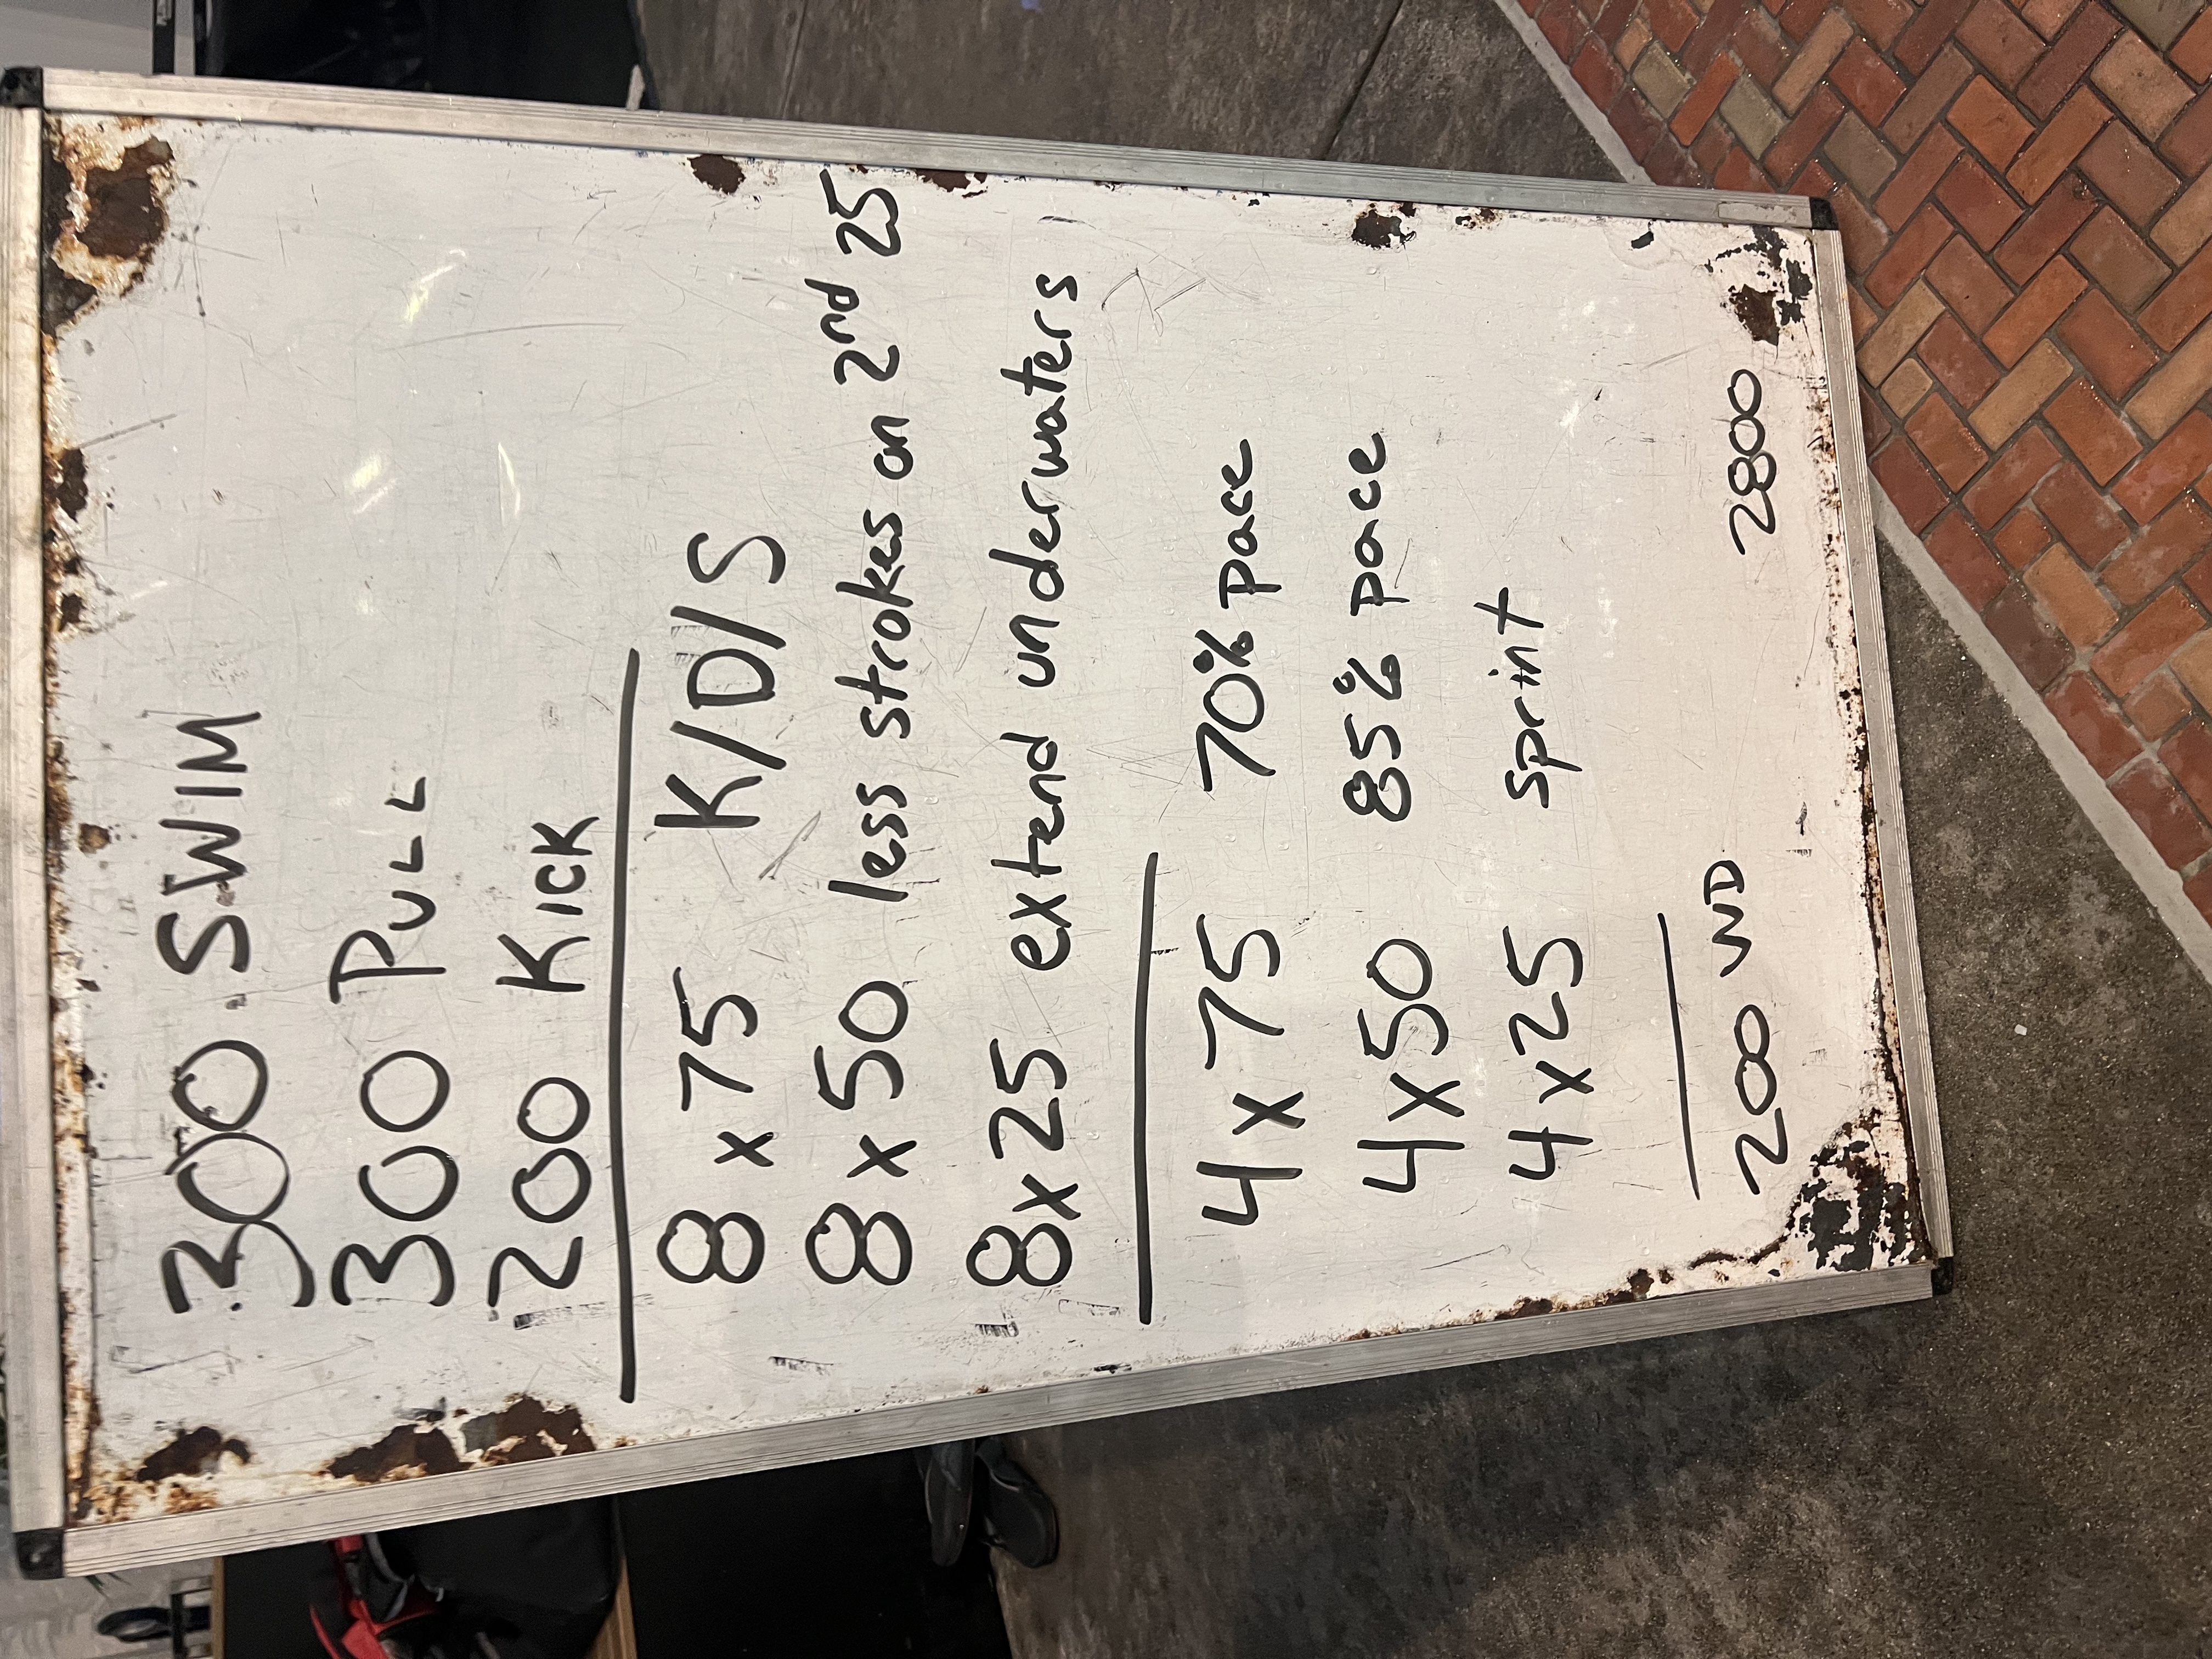 300 SWIM
300 PULL
200 KICK
8 x 75 K/D/S
8 x 50 less strokes on 2nd 25
8x25 extend underwaters
4 x 75 70% pace
4x50 85% pace
4 x25 sprint
200 WD 2800